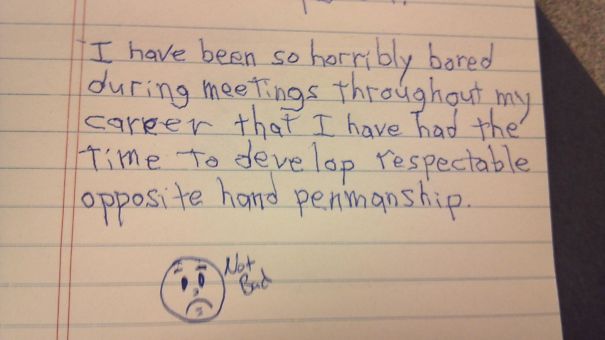 I have been so horribly bored
during meetings throughout my
career that I have had the
time to develop respectable
opposite hand penmanship.
Not
Bad